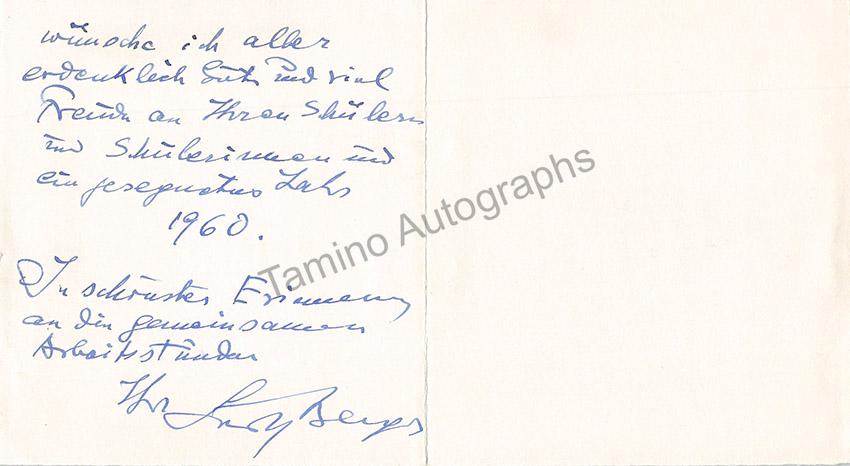 wünsche ich aller
erdenklich Gute und viel
Freude an Ihren Schülern
und Schülerinnen und
ein gesegnetes Jahr
1960.
In schönster Erinnerung
an die gemeinsamen
Arbeitsstunden
Ihr Berger
Tamino Autographs